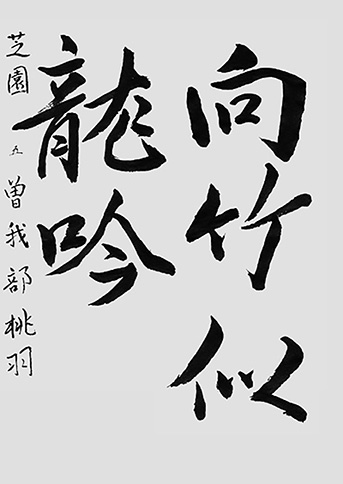 向竹似
龍吟
芝園 五 曽我部桃羽